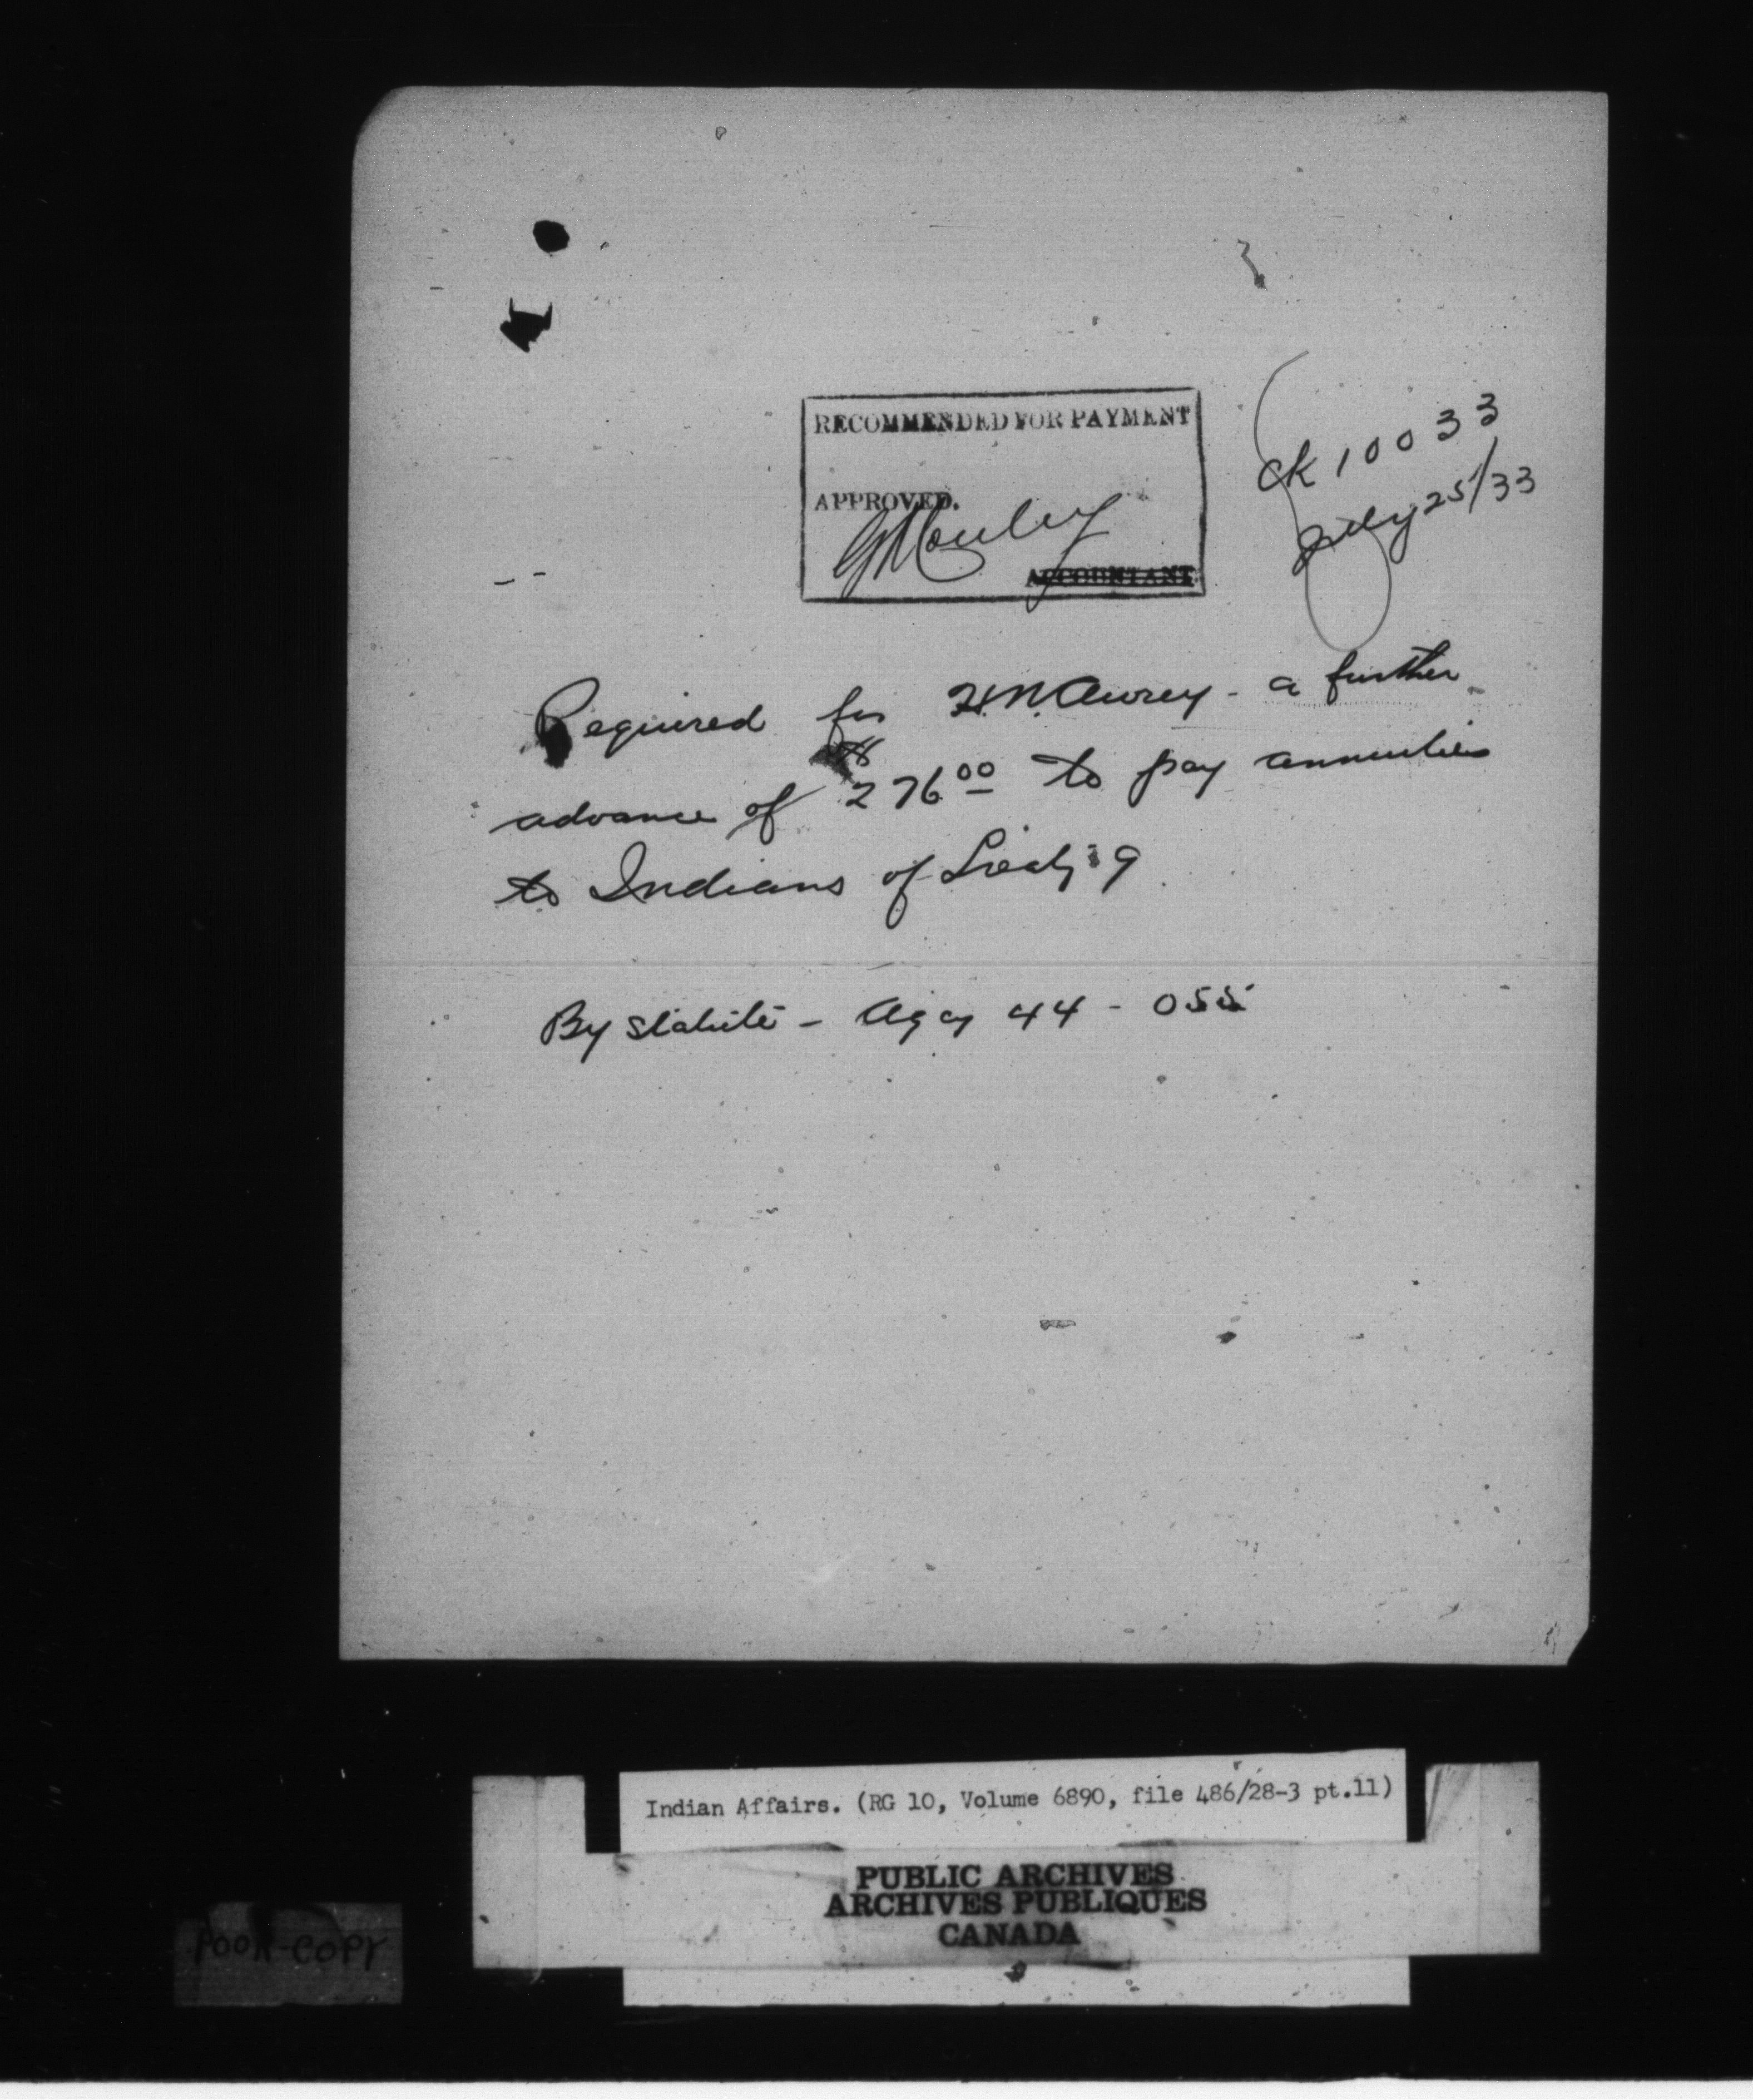 RECOMMENDED FOR PAYMENT
APPROVED.
ACCOUNTANT
ck 10033
July 25/33
Required for H.N. Awrey - a further
advance of $276.00 to pay annuities
to Indians of Treaty 9
By Statute - Agcy 44 - 055
Indian Affairs. (RG 10, Volume 6890, file 486/28-3 pt.11)
PUBLIC ARCHIVES
ARCHIVES PUBLIQUES
CANADA
POOR COPY